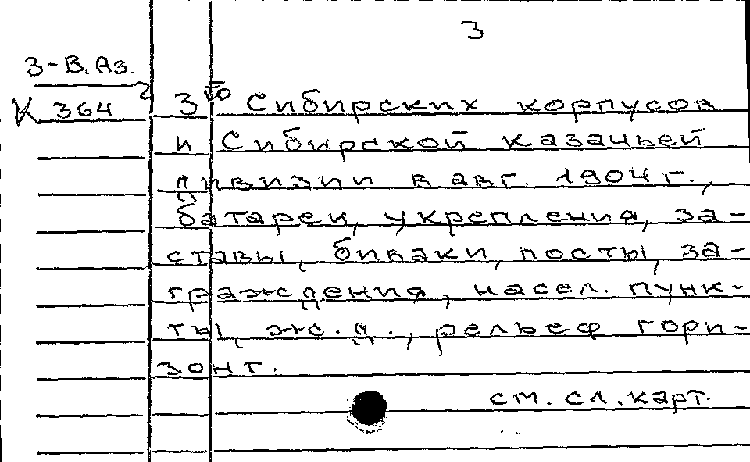 3
З-В.Аз.
К 364
3го Сибирских корпусов
и Сибирской казачьей
дивизии в авг. 1904 г.,
батареи, укрепления, за-
ставы, биваки, посты, за-
граждения, насел. пунк-
ты, ж.д., рельеф гори-
зонт.
см. сл. карт.